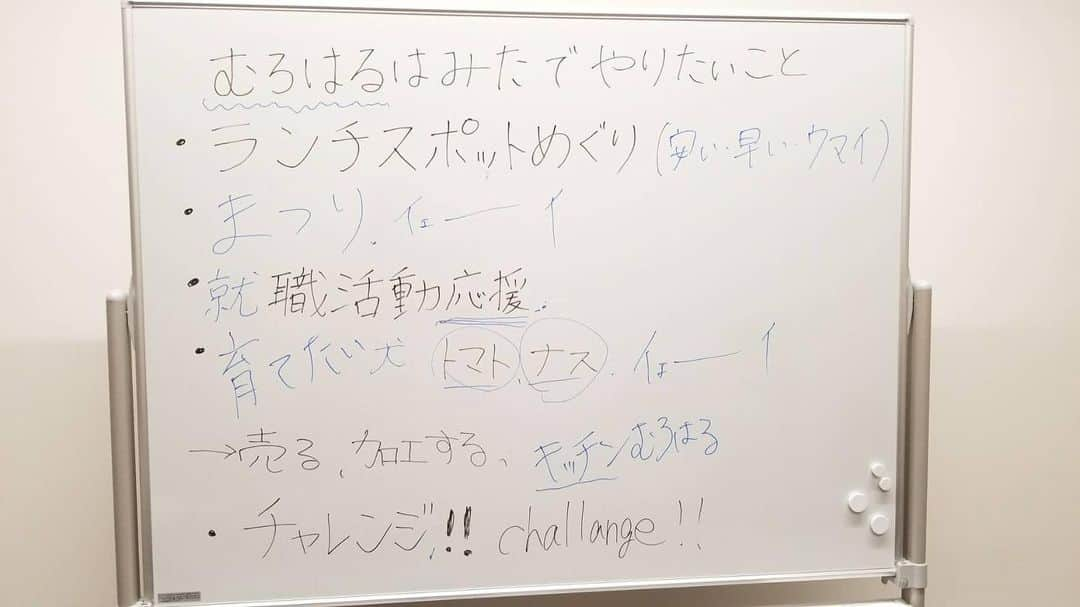 むろはるはみたでやりたいこと
・ランチスポットめぐり(安い・早い・ウマイ)
・まつり.イェーイ
・就職活動応援.
・育てたい犬 トマト、ナス.イェーイ
→売る、加工する、キッチンむろはる
・チャレンジ!! challange!!